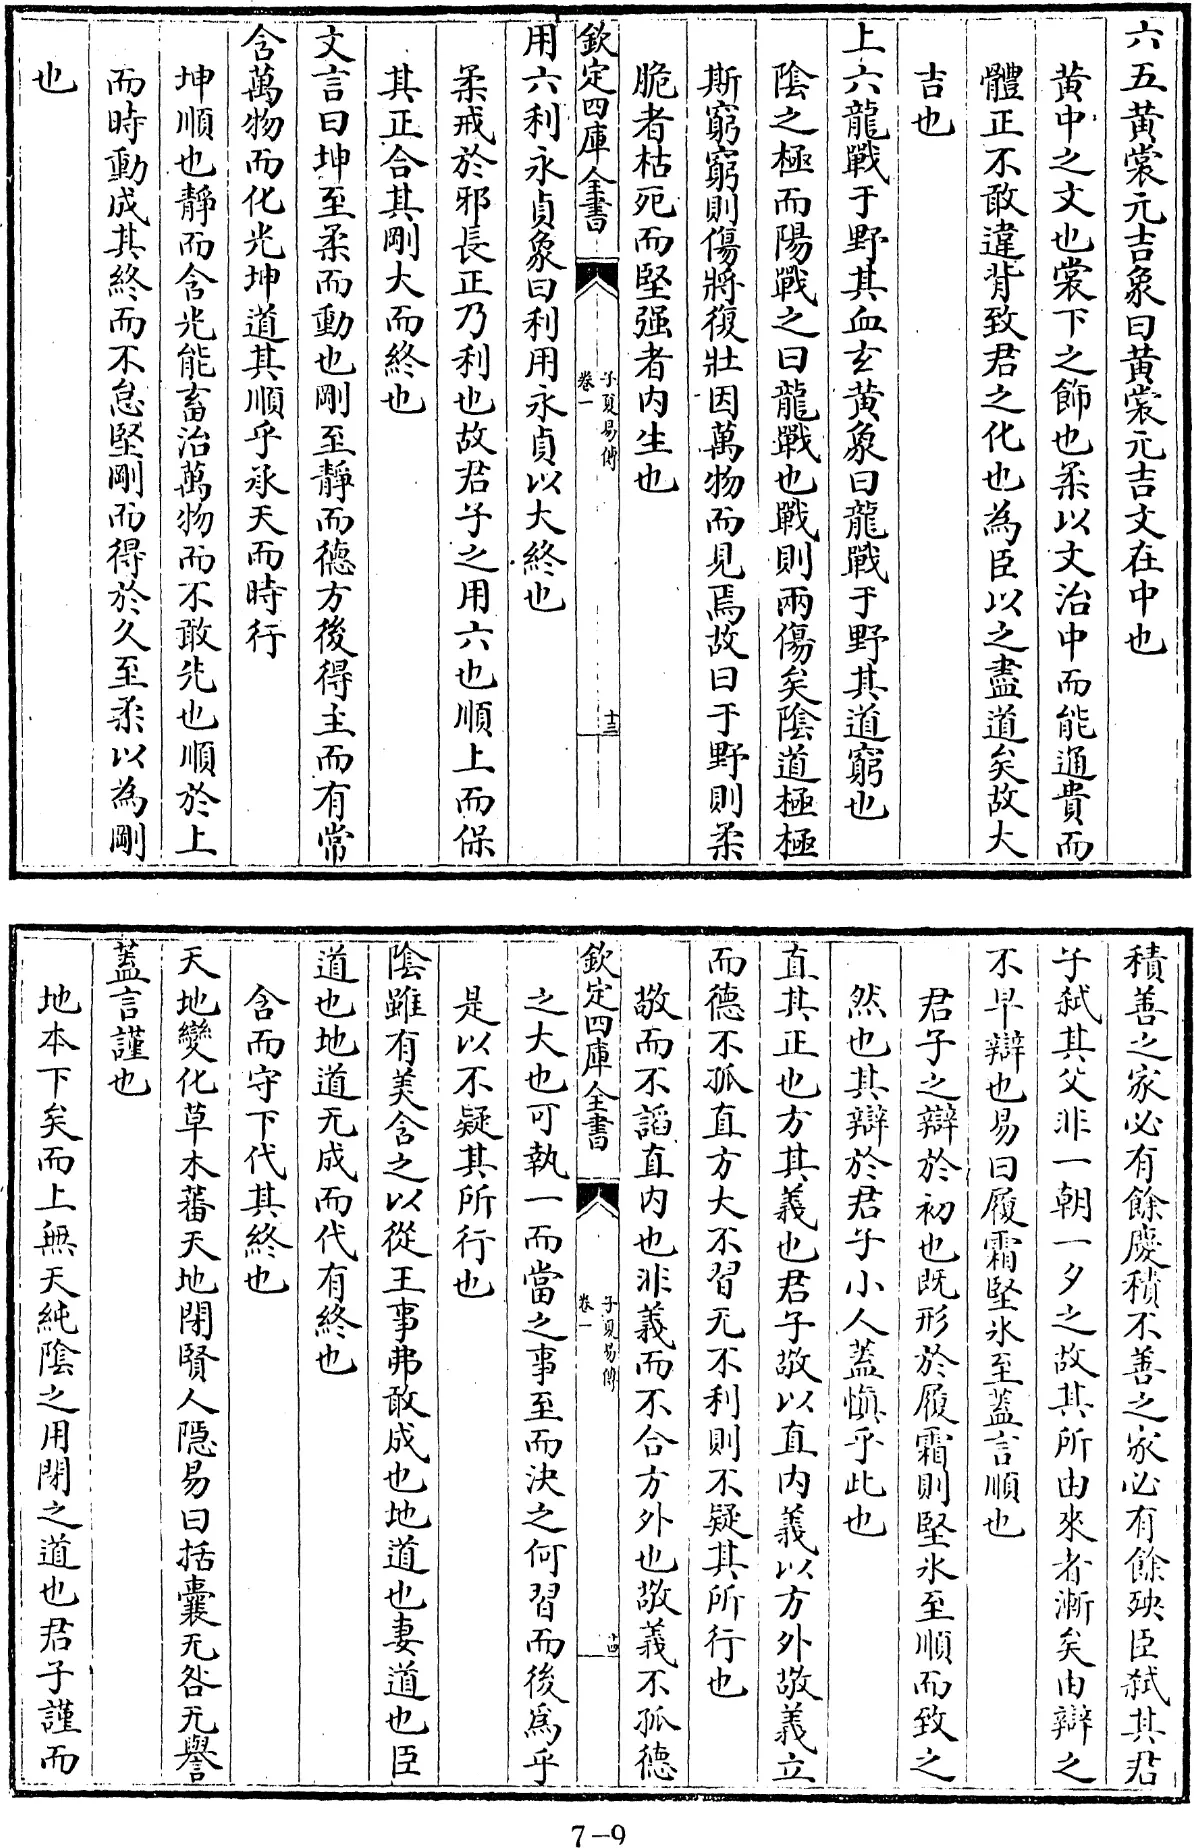 六五黄裳元吉象曰黄裳元吉文在中也
黄中之文也裳下之飾也柔以文治中而能通貴而
體正不敢違背致君之化也為臣以之盡道矣故大
吉也
上六龍戰于野其血玄黄象曰龍戰于野其道窮也
陰之極而陽戰之曰龍戰也戰則兩傷矣陰道極極
斯窮窮則傷將復壯因萬物而見焉故曰于野則柔
脆者枯死而堅强者内生也
欽定四庫全書
子夏易傳
卷一
十三
用六利永貞象曰利用永貞以大終也
柔戒於邪長正乃利也故君子之用六也順上而保
其正合其剛大而終也
文言曰坤至柔而動也剛至靜而德方後得主而有常
含萬物而化光坤道其順乎承天而時行
坤順也靜而含光能畜治萬物而不敢先也順於上
而時動成其終而不怠堅剛而得於久至柔以為剛
也
積善之家必有餘慶積不善之家必有餘殃臣弑其君
子弑其父非一朝一夕之故其所由來者漸矣由辯之
不早辯也易曰履霜堅氷至蓋言順也
君子之辯於初也既形於履霜則堅氷至順而致之
然也其辯於君子小人蓋慎乎此也
直其正也方其義也君子敬以直内義以方外敬義立
而德不孤直方大不習无不利則不疑其所行也
敬而不諂直内也非義而不合方外也敬義不孤德
欽定四庫全書
子夏易傳
卷一
十四
之大也可執一而當之事至而決之何習而後爲乎
是以不疑其所行也
陰雖有美含之以從王事弗敢成也地道也妻道也臣
道也地道无成而代有終也
含而守下代其終也
天地變化草木蕃天地閉賢人隠易曰括囊无咎无譽
蓋言謹也
地本下矣而上無天純陰之用閉之道也君子謹而
7-9